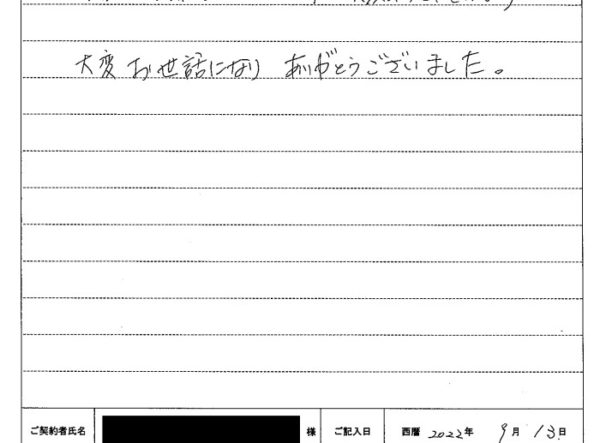 大変お世話になり ありがとうございました。
ご契約者氏名 様 ご記入日 西暦 2022年 9月 13日